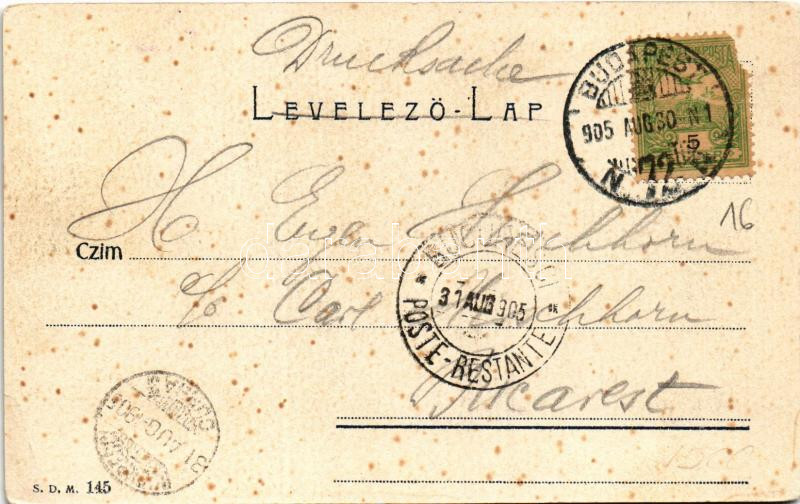 Drucksache
LEVELEZŐ-LAP
BUDAPEST
905 AUG 30 N 1
N. 72
5
16
H Eugen Hirschhorn
Czim
c/o Carl Hirschhorn
BUCURESCI
31 AUG 905
* POSTE-RESTANTE *
Bucarest
31 AUG 905
S. D. M. 145